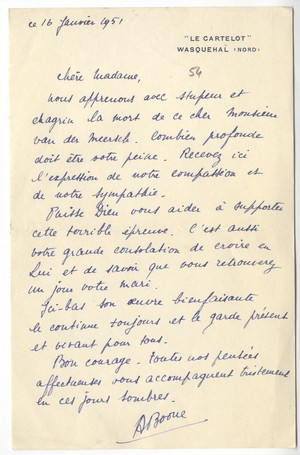 ce 16 Janvier 1951
"LE CARTELOT"
WASQUEHAL (NORD)
54
chère Madame,
nous apprenons avec stupeur et
chagrin la mort de ce cher Monsieur
van der Meersch. Combien profonde
doit être votre peine. Recevez ici
l'expression de notre compassion et
de notre sympathie.
Puisse Dieu vous aider à supporter
cette terrible épreuve. C'est aussi
votre grande consolation de croire en
Lui et de savoir que vous retrouverez
un jour votre mari.
Ici-bas son œuvre bienfaisante
le continue toujours et le garde présent
et vivant pour tous.
Bon courage. Toutes nos pensées
affectueuses vous accompagnent tristement
en ces jours sombres.
ABoone